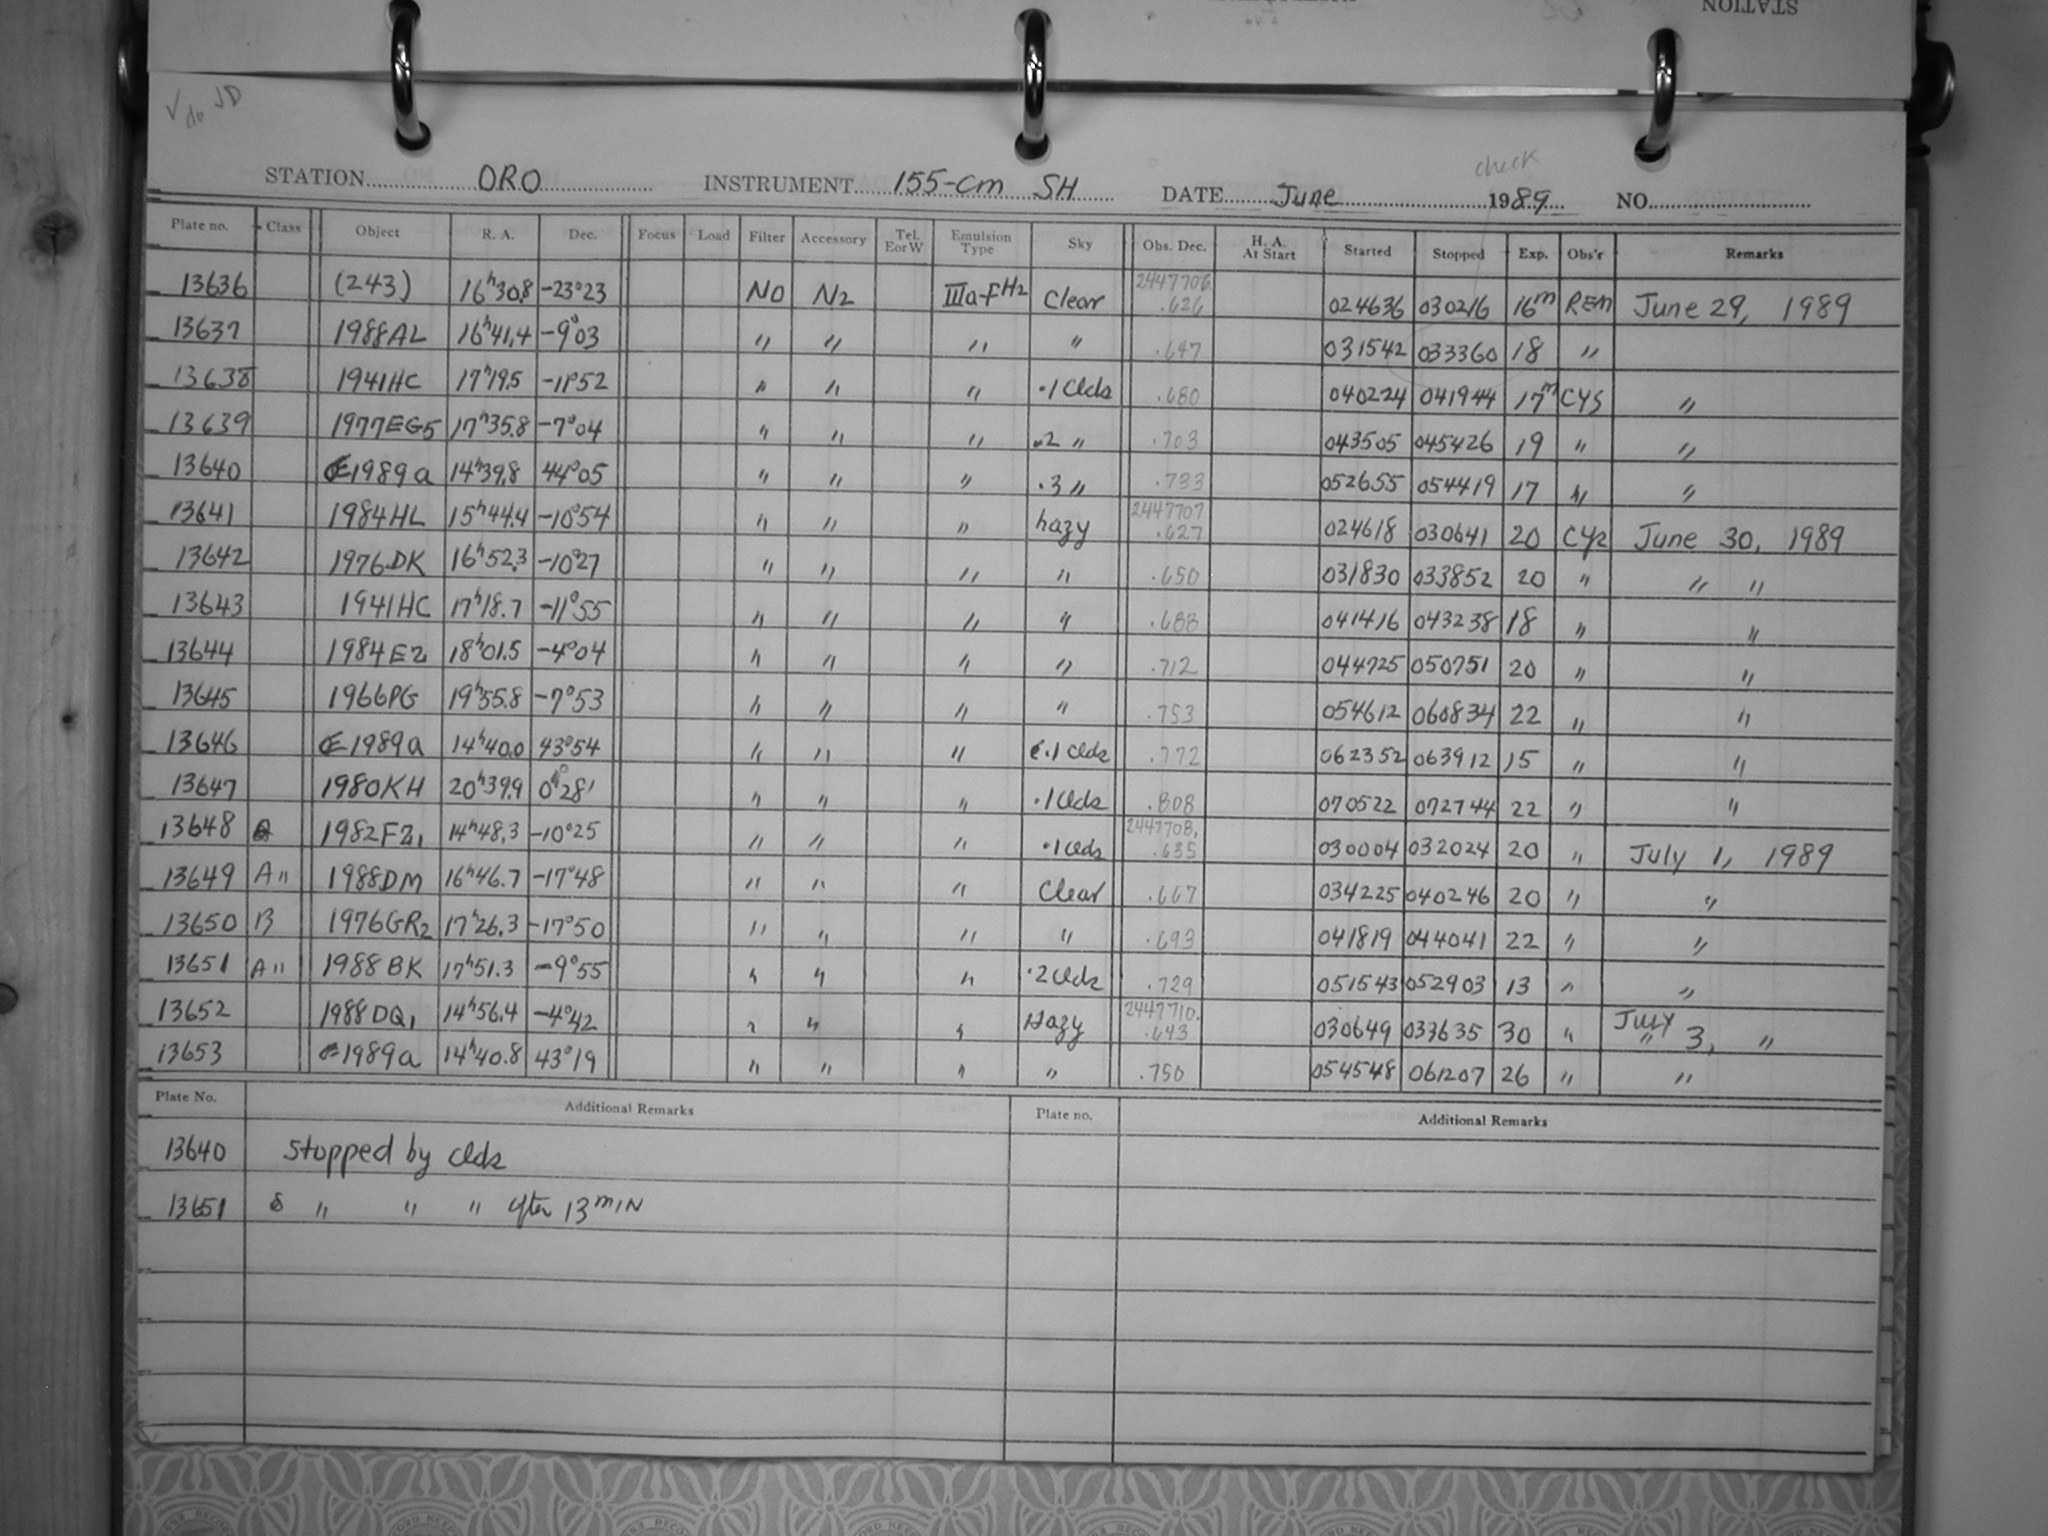 STATION
√ do JD
check
STATION ORO INSTRUMENT 155-cm SH DATE June 1989 NO.
Plate no. Class Object R. A. Dec. Focus Load Filter Accessory Tel. E or W Emulsion Type Sky Obs. Dec. H. A. At Start Started Stopped Exp. Obs'r Remarks
13636 (243) 16h30.8 -23°23 NO N2 IIIa-F H2 Clear 2447706 .626 024636 030216 16m REM June 29, 1989
13637 1988AL 16h41.4 -9°03 " " " " .647 031542 033360 18 "
13638 1941HC 17h19.5 -11°52 " " " .1 Clds .680 040224 041944 17m CYS "
13639 1977EG5 17h35.8 -7°04 " " " .2 " .703 043505 045426 19 " "
13640 C1989a 14h39.8 44°05 " " " .3 " .733 052655 054419 17 " "
13641 1984HL 15h44.4 -10°54 " " " hazy 2447707 .627 024618 030641 20 CYS June 30, 1989
13642 1976DK 16h52.3 -10°27 " " " " .650 031830 033852 20 " " "
13643 1941HC 17h18.7 -11°55 " " " " .688 041416 043238 18 " "
13644 1984EZ 18h01.5 -4°04 " " " " .712 044725 050751 20 " "
13645 1966PG 19h55.8 -7°53 " " " " .753 054612 060834 22 " "
13646 C1989a 14h40.0 43°54 " " " .1 Clds .772 062352 063912 15 " "
13647 1980KH 20h39.9 0°28' " " " .1 Clds .808 070522 072744 22 " "
13648 1982FZ1 14h48.3 -10°25 " " " .1 Clds 2447708. .635 030004 032024 20 " July 1, 1989
13649 A" 1988DM 16h46.7 -17°48 " " " Clear .667 034225 040246 20 " "
13650 B 1976GR2 17h26.3 -17°50 " " " " .693 041819 044041 22 " "
13651 A" 1988BK 17h51.3 -9°55 " " " .2 Clds .729 051543 052903 13 " "
13652 1988DQ1 14h56.4 -4°42 " " " Hazy 2447710. .643 030649 033635 30 " July " 3, "
13653 C1989a 14h40.8 43°19 " " " " .750 054548 061207 26 " "
Plate No. Additional Remarks Plate no. Additional Remarks
13640 Stopped by clds
13651 " " " after 13 MIN